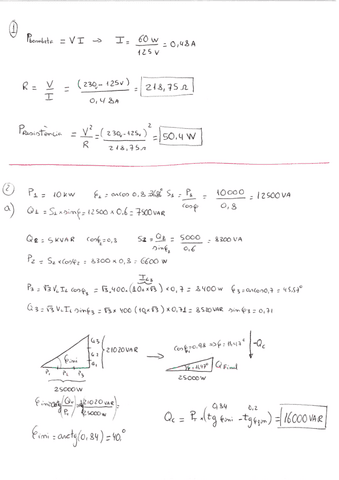 ①
Pbombeta = V I → I = 60W / 125V = 0,48A
R = V / I = (230 - 125V) / 0,48A = 218,75Ω
PResistência = V² / R = (230 - 125V)² / 218,75Ω = 50.4 W
②
a) P1 = 10kW φ1 = arcos 0,8 S1 = P1 / cosφ = 10000 / 0,8 = 12500 VA
Q1 = S1 × sinφ = 12500 × 0.6 = 7500 VAR
Q2 = 5 KVAR cosφ = 0,8 S2 = Q2 / sinφ = 5000 / 0.6 = 8300 VA
P2 = S2 × cosφ2 = 8300 × 0,8 = 6600 W
P3 = √3 VL IL cosφ3 = √3.400.(10×√3) × 0,7 = 8400 W φ3 = arcos 0,7 = 45.57°
Q3 = √3 VL IL sinφ3 = √3 × 400 × (10×√3) × 0,71 = 8520 VAR sinφ3 = 0,71
φini
Q3
Q2
Q1
21020 VAR
P1 P2 P3
25000 W
→
cosφ = 0.98
Qfinal
25000 W
-Qc
21020 VAR / 25000 W
φini = arctg(0,84) = 40°
Qc = PT · (tgφini - tgφfin) = 16000 VAR
0,84 0,2